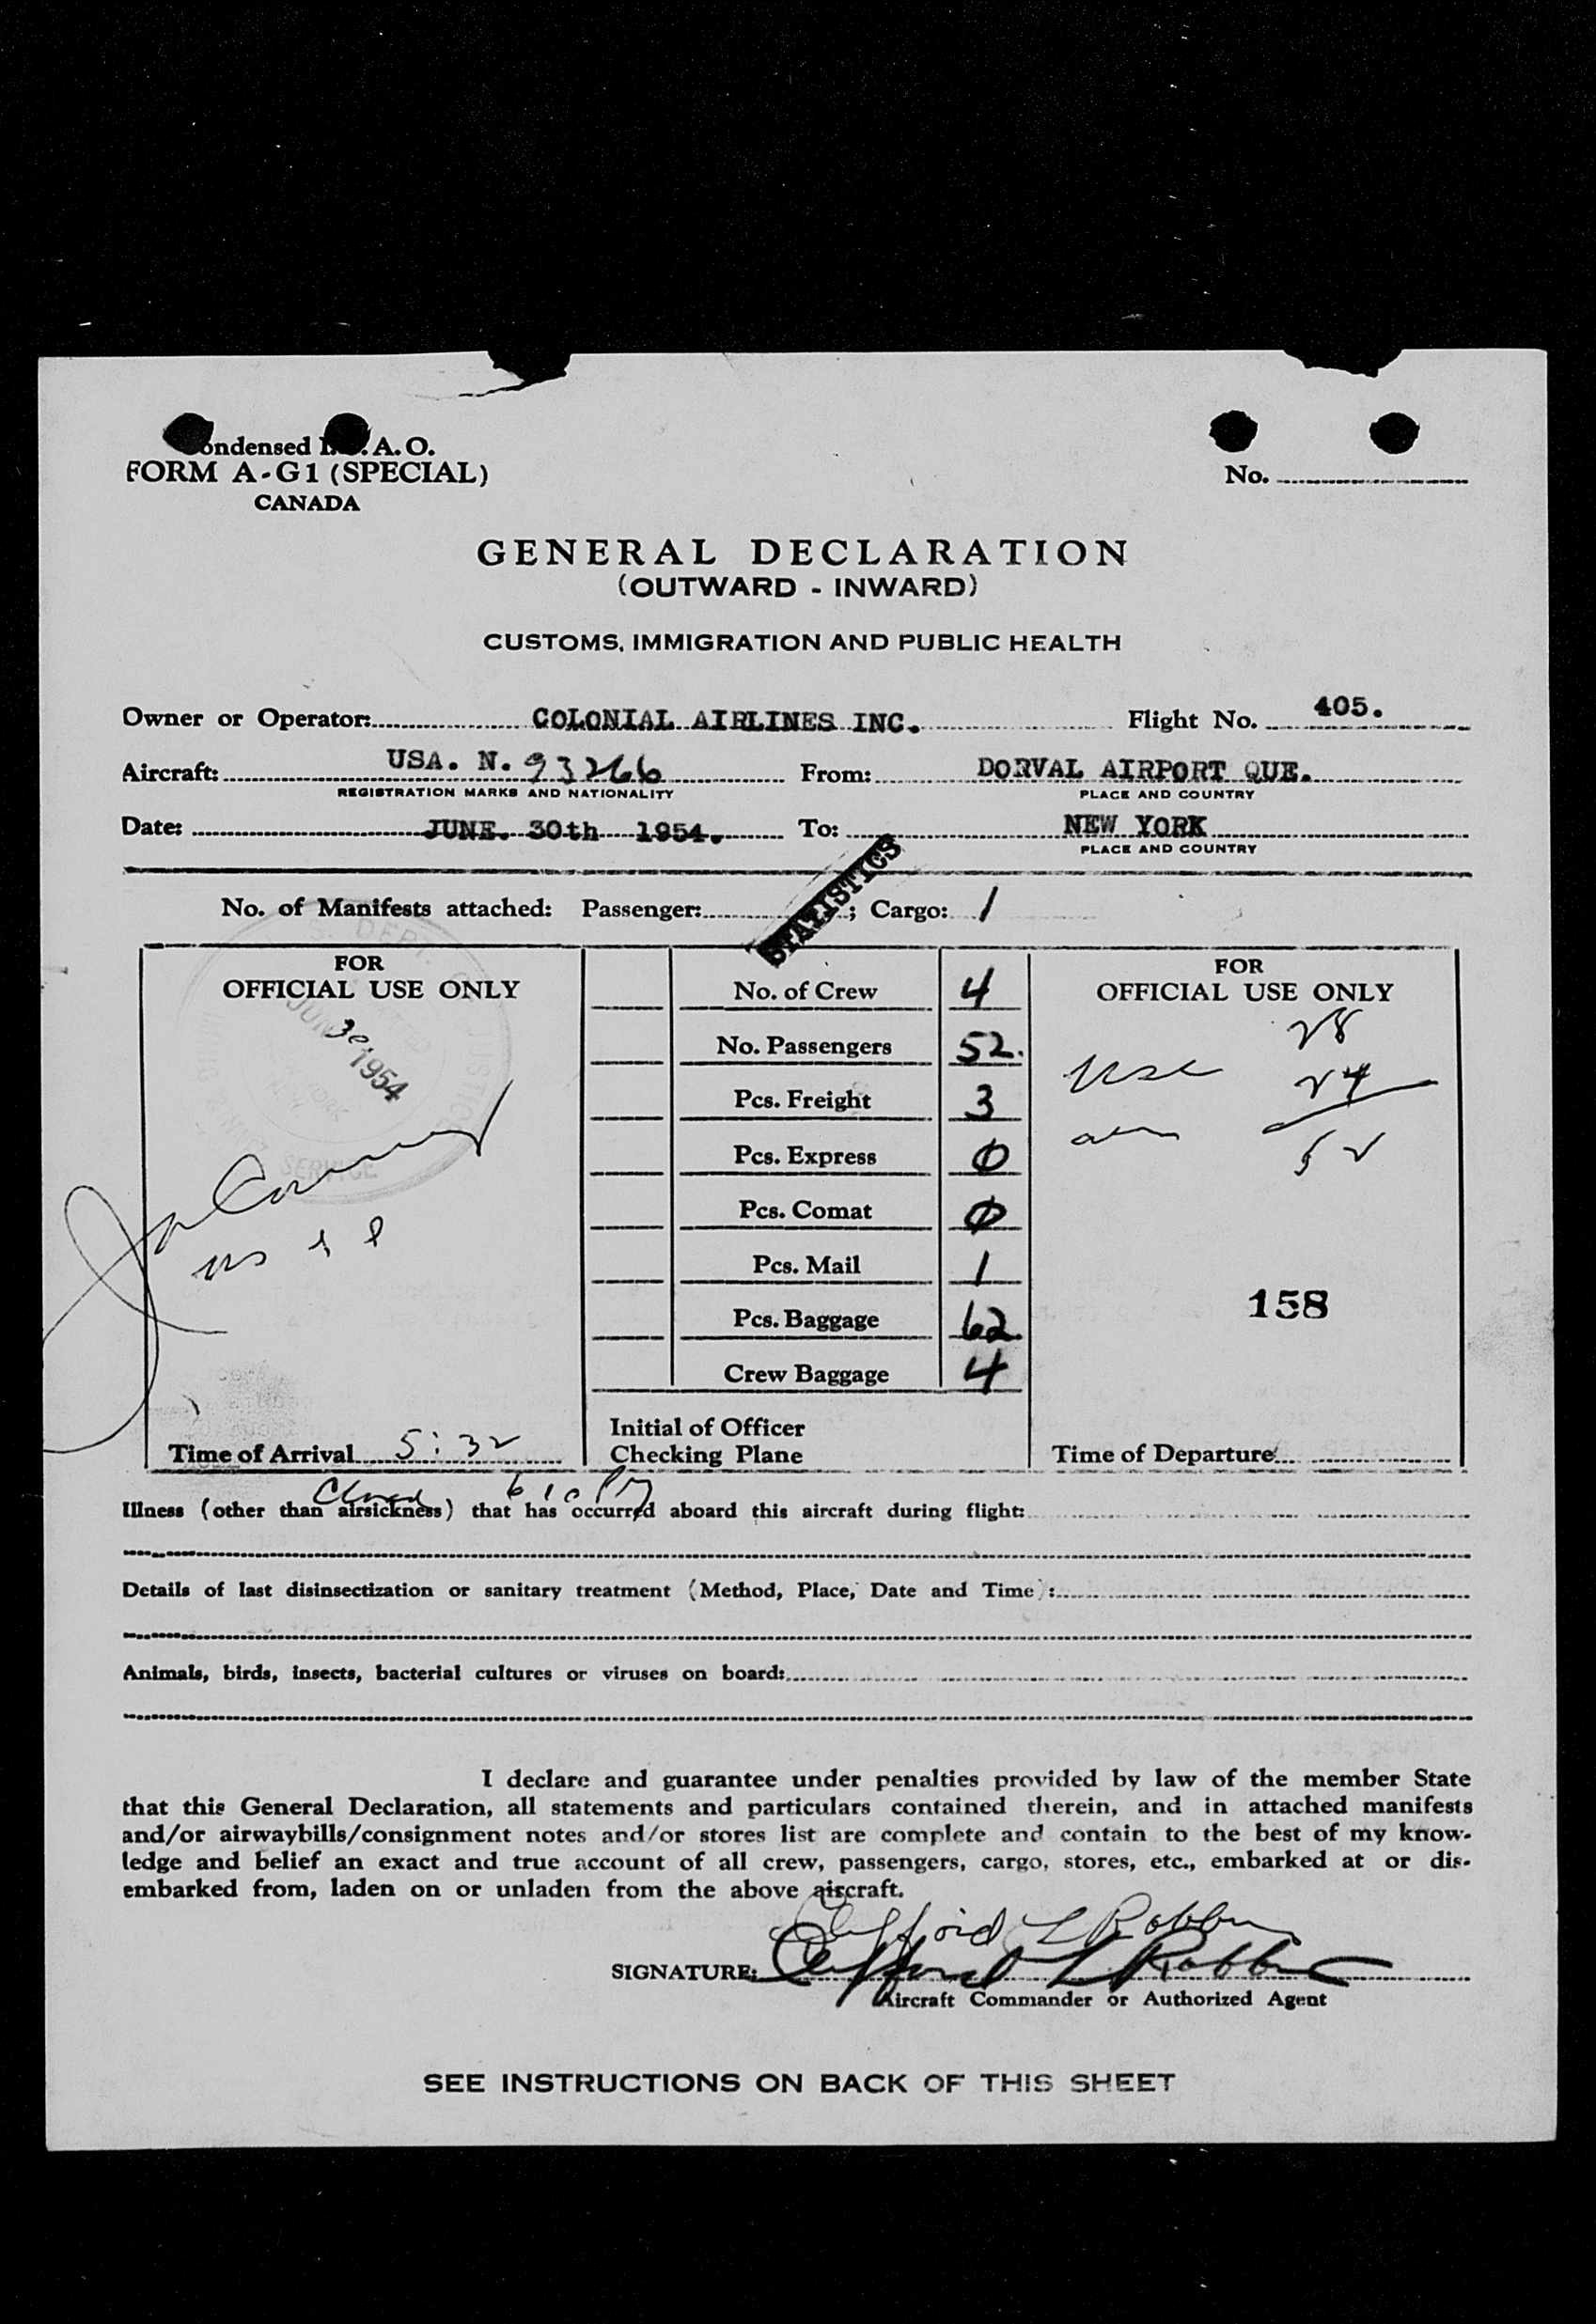 ondensed I. . A. O.
FORM A-G1 (SPECIAL)
CANADA
No.
GENERAL DECLARATION
(OUTWARD - INWARD)
CUSTOMS, IMMIGRATION AND PUBLIC HEALTH
Owner or Operator: COLONIAL AIRLINES INC. Flight No. 405.
Aircraft: USA. N. 93266 From: DORVAL AIRPORT QUE.
REGISTRATION MARKS AND NATIONALITY PLACE AND COUNTRY
Date: JUNE. 30th 1954. To: NEW YORK
PLACE AND COUNTRY
STATISTICS
No. of Manifests attached: Passenger: ; Cargo: 1
FOR
OFFICIAL USE ONLY
JUN 30 1954
SERVICE
Time of Arrival 5:32
No. of Crew 4
No. Passengers 52.
Pcs. Freight 3
Pcs. Express 0
Pcs. Comat 0
Pcs. Mail 1
Pcs. Baggage 62.
Crew Baggage 4
Initial of Officer
Checking Plane
FOR
OFFICIAL USE ONLY
28
usc 24
52
158
Time of Departure
Closed 610 PM
Illness (other than airsickness) that has occurred aboard this aircraft during flight:
Details of last disinsectization or sanitary treatment (Method, Place, Date and Time):
Animals, birds, insects, bacterial cultures or viruses on board:
I declare and guarantee under penalties provided by law of the member State
that this General Declaration, all statements and particulars contained therein, and in attached manifests
and/or airwaybills/consignment notes and/or stores list are complete and contain to the best of my know-
ledge and belief an exact and true account of all crew, passengers, cargo, stores, etc., embarked at or dis-
embarked from, laden on or unladen from the above aircraft.
Clifford L Robbins
SIGNATURE: Clifford L Robbins
Aircraft Commander or Authorized Agent
SEE INSTRUCTIONS ON BACK OF THIS SHEET